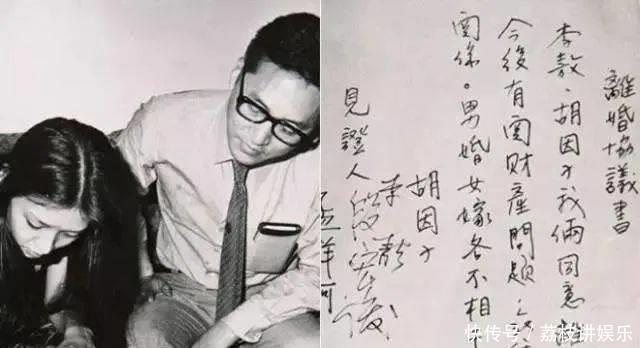 離婚協議書
李敖.胡因子我倆同意
今後有関财產問題.
関係。男婚女嫁各不相
胡因子
李敖
見證人
快传号/荔枝讲娱乐